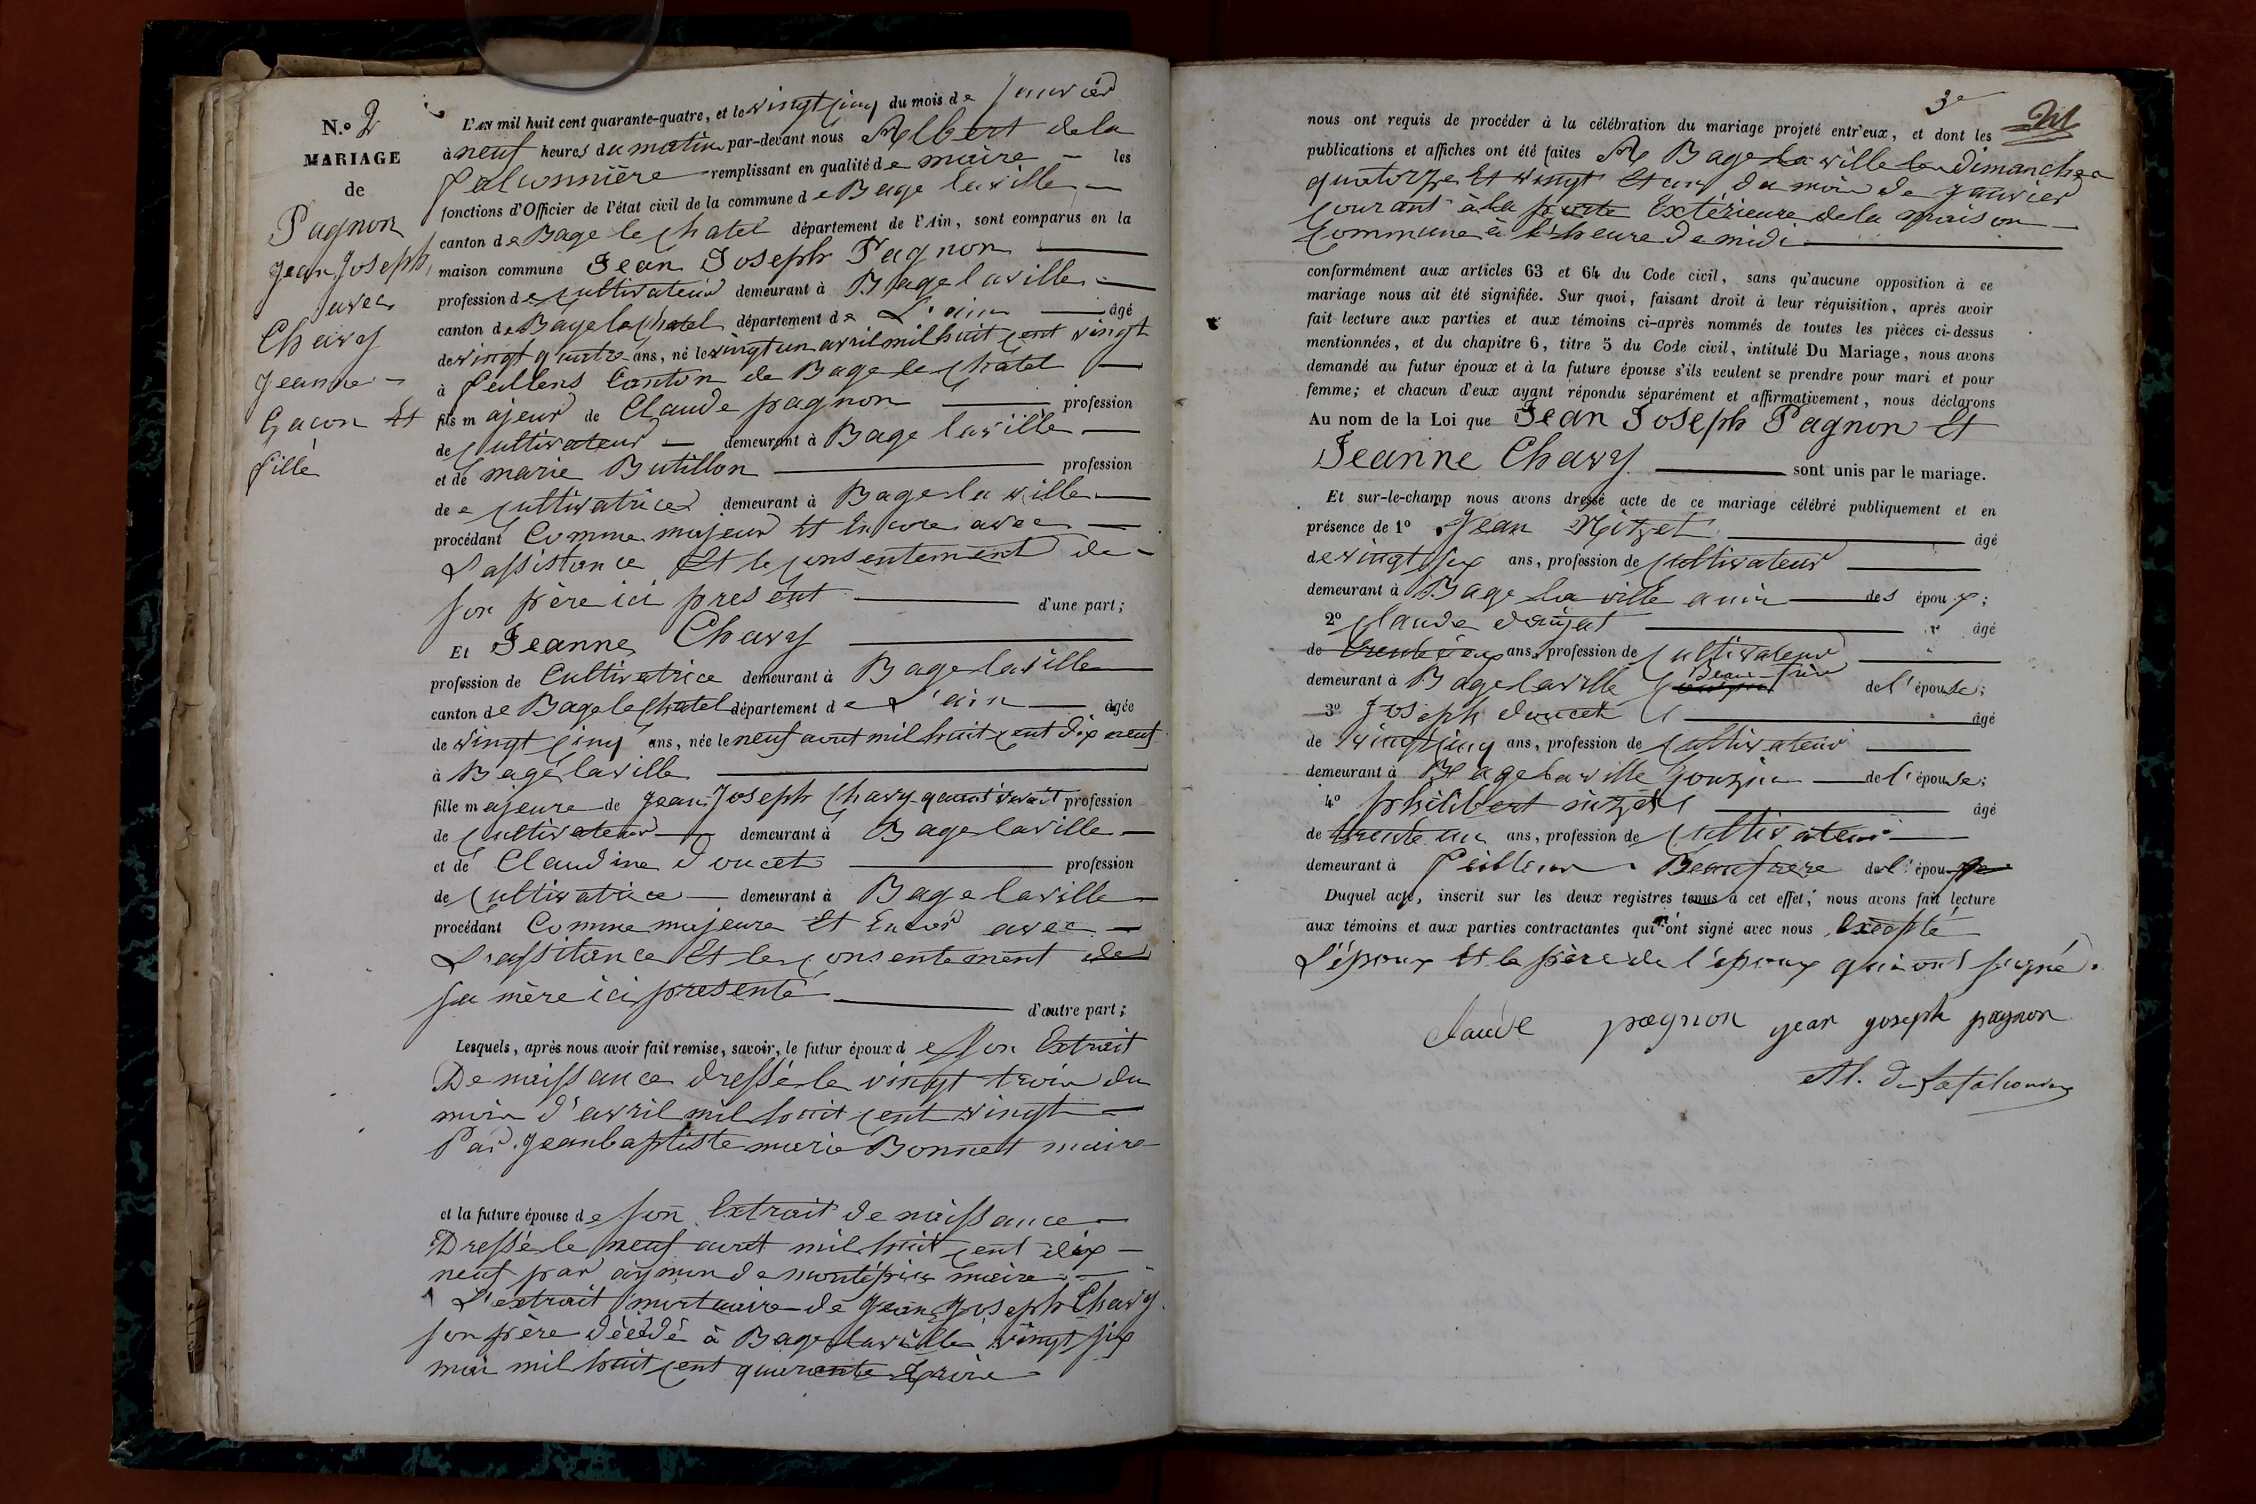 N.o 2
MARIAGE
de
Pagnon
Jean Joseph
avec
Chavy
Jeanne
Garcon Et
fille
L'AN mil huit cent quarante-quatre, et le vingt cinq du mois de Janvier
à neuf heures du matin par-devant nous Albert dela
falconnière remplissant en qualité de maire les
fonctions d'Officier de l'état civil de la commune de Bage laville
canton de Bage le chatel département de l'Ain, sont comparus en la
maison commune Jean Joseph Pagnon
profession de cultivateur demeurant à Bage laville
canton de Bage le chatel département de L'ain âgé
de vingt quatre ans, né le vingt un avril mil huit cent vingt
à feillens Canton de Bage le chatel
fils majeur de Claude pagnon profession
de cultivateur demeurant à Bage laville
et de marie Butillon profession
de cultivatrice demeurant à Bage la ville
procédant Comme majeur Et Encore avec
L'assistance Et le consentement de
son père ici présent d'une part;
Et Jeanne Chavy
profession de Cultivatrice demeurant à Bage laville
canton de Bage le chatel département de L'ain âgée
de vingt cinq ans, née le neuf aout mil huit cent dix neuf
à Bage laville
fille majeure de Jean Joseph Chavy quand vivait profession
de cultivateur demeurant à Bage laville
et de Claudine doucet profession
de cultivatrice demeurant à Bage laville
procédant Comme majeure Et Encor avec
L'assitance Et le consentement de
sa mère ici presente d'autre part;
Lesquels, après nous avoir fait remise, savoir, le futur époux de son Extrait
De naissance dressé le vingt trois du
mois d'avril mil huit cent vingt
Par Jean baptiste marie Bonnet maire
et la future épouse de son Extrait de naissance
Dressé le neuf aout mil huit cent dix
neuf par aymon de montépin maire
L'extrait mortuaire de Jean Joseph Chavy
son père décédé à Bage laville vingt six
mai mil huit cent quarante trois
3e
nous ont requis de procéder à la célébration du mariage projeté entr'eux, et dont les
publications et affiches ont été faites A Bage la ville le dimanche
quatorze Et vingt Et un du mois de janvier
courant à la porte Extérieure de la maison
Commune à l'heure de midi
conformément aux articles 63 et 64 du Code civil, sans qu'aucune opposition à ce
mariage nous ait été signifiée. Sur quoi, faisant droit à leur réquisition, après avoir
fait lecture aux parties et aux témoins ci-après nommés de toutes les pièces ci-dessus
mentionnées, et du chapitre 6, titre 5 du Code civil, intitulé Du Mariage, nous avons
demandé au futur époux et à la future épouse s'ils veulent se prendre pour mari et pour
femme; et chacun d'eux ayant répondu séparément et affirmativement, nous déclarons
Au nom de la Loi que Jean Joseph Pagnon Et
Jeanne Chavy sont unis par le mariage.
Et sur-le-champ nous avons dressé acte de ce mariage célébré publiquement et en
présence de 1o Jean Nizet âgé
de vingt six ans, profession de cultivateur
demeurant à Bage la ville amis des époux;
2o claude âgé
de trente deux ans, profession de cultivateur
demeurant à Bage laville Beau frère de l'épouse;
3o Joseph doucet âgé
de vingt cinq ans, profession de cultivateur
demeurant à Bage laville Couzin de l'épouse;
4o philibert nizet âgé
de trente un ans, profession de cultivateur
demeurant à feillens Beaufrere de l'épou
Duquel acte, inscrit sur les deux registres tenus à cet effet, nous avons fait lecture
aux témoins et aux parties contractantes qui n'ont signé avec nous Excepté
L'époux Et le père de l'époux qui ont signé.
claude pagnon jean joseph pagnon
Al. de Lafalconnière